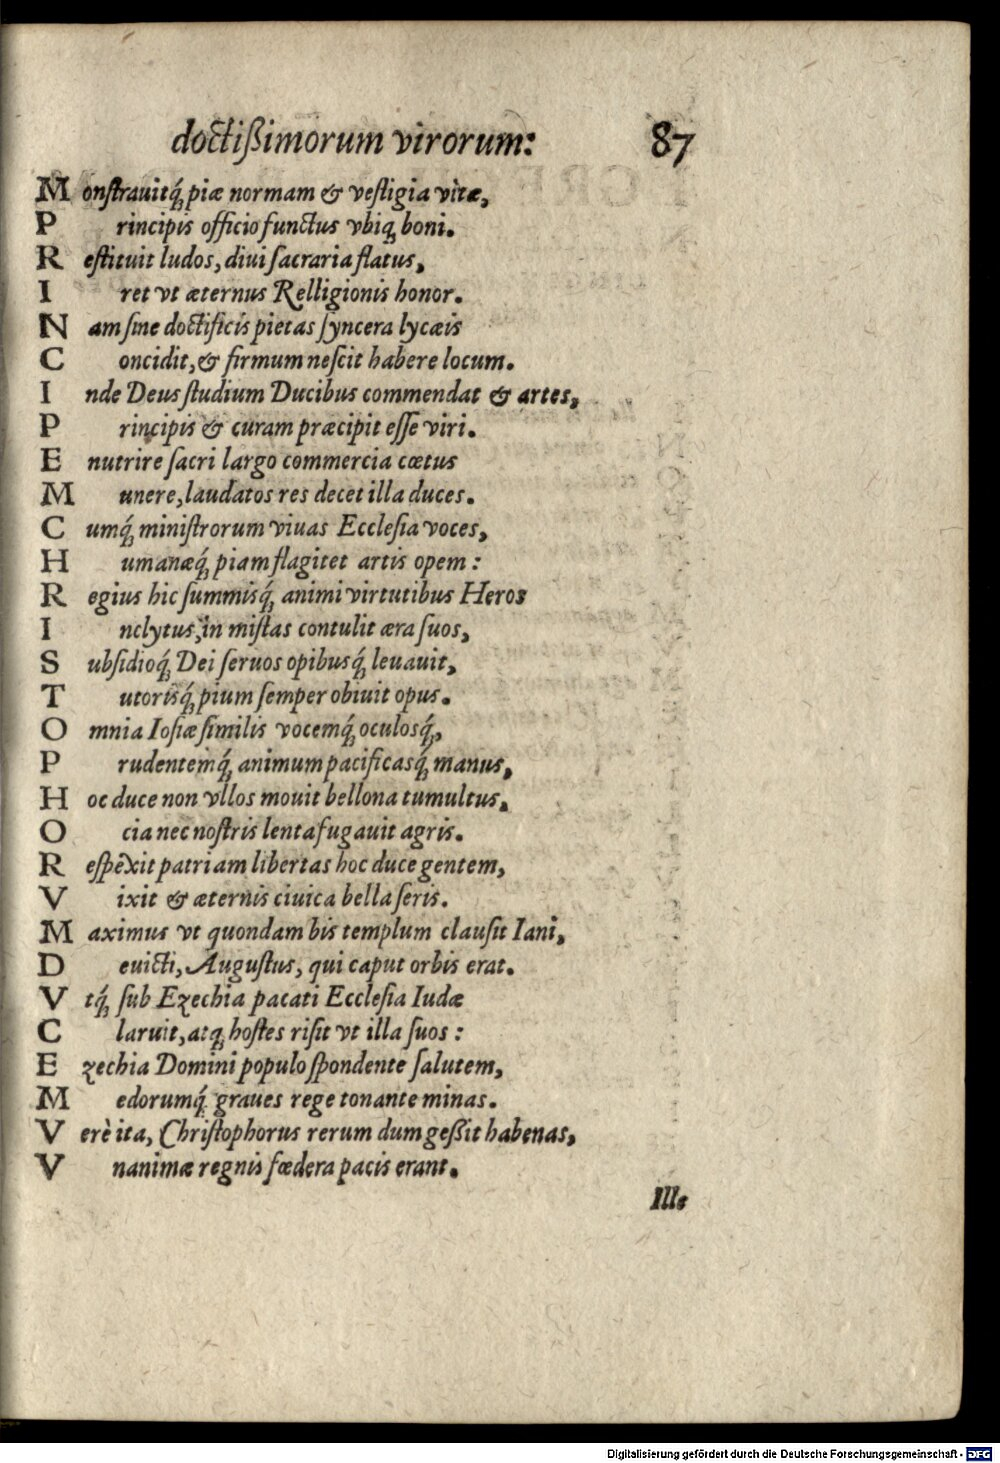 doctißimorum virorum: 87
Monſtrauitq́ꝫ piæ normam & veſtigia vitæ,
Principis officio functus vbiqꝫ boni.
Reſtituit ludos, diui ſacraria flatus,
Iret vt æternus Relligionis honor.
Nam ſine doctificis pietas ſyncera lycæis
Concidit, & firmum neſcit habere locum.
Inde Deus ſtudium Ducibus commendat & artes,
Principis & curam præcipit eſſe viri.
Enutrire ſacri largo commercia cœtus
Munere, laudatos res decet illa duces.
Cumq́ꝫ miniſtrorum viuas Eccleſia voces,
Humanæq́ꝫ piam flagitet artis opem:
Regius hic ſummisq́ꝫ animi virtutibus Heros
Inclytus, in miſtas contulit æra ſuos,
Subſidioq́ꝫ Dei ſeruos opibusq́ꝫ leuauit,
Tutorisq́ꝫ pium ſemper obiuit opus.
Omnia Ioſiæ ſimilis vocemq́ꝫ oculosq́ꝫ,
Prudentemq́ꝫ animum pacificasq́ꝫ manus,
Hoc duce non vllos mouit bellona tumultus,
Ocia nec noſtris lenta fugauit agris.
Reſpexit patriam libertas hoc duce gentem,
Vixit & æternis ciuica bella ſeris.
Maximus vt quondam bis templum clauſit Iani,
Deuicti, Auguſtus, qui caput orbis erat.
Vtq́ꝫ ſub Ezechia pacati Eccleſia Iudæ
Claruit, atqꝫ hoſtes riſit vt illa ſuos:
Ezechia Domini populo ſpondente ſalutem,
Medorumq́ꝫ graues rege tonante minas.
Verè ita, Chriſtophorus rerum dum geßit habenas,
Vnanimæ regnis fœdera pacis erant.
Ille
Digitalisierung gefördert durch die Deutsche Forschungsgemeinschaft - DFG